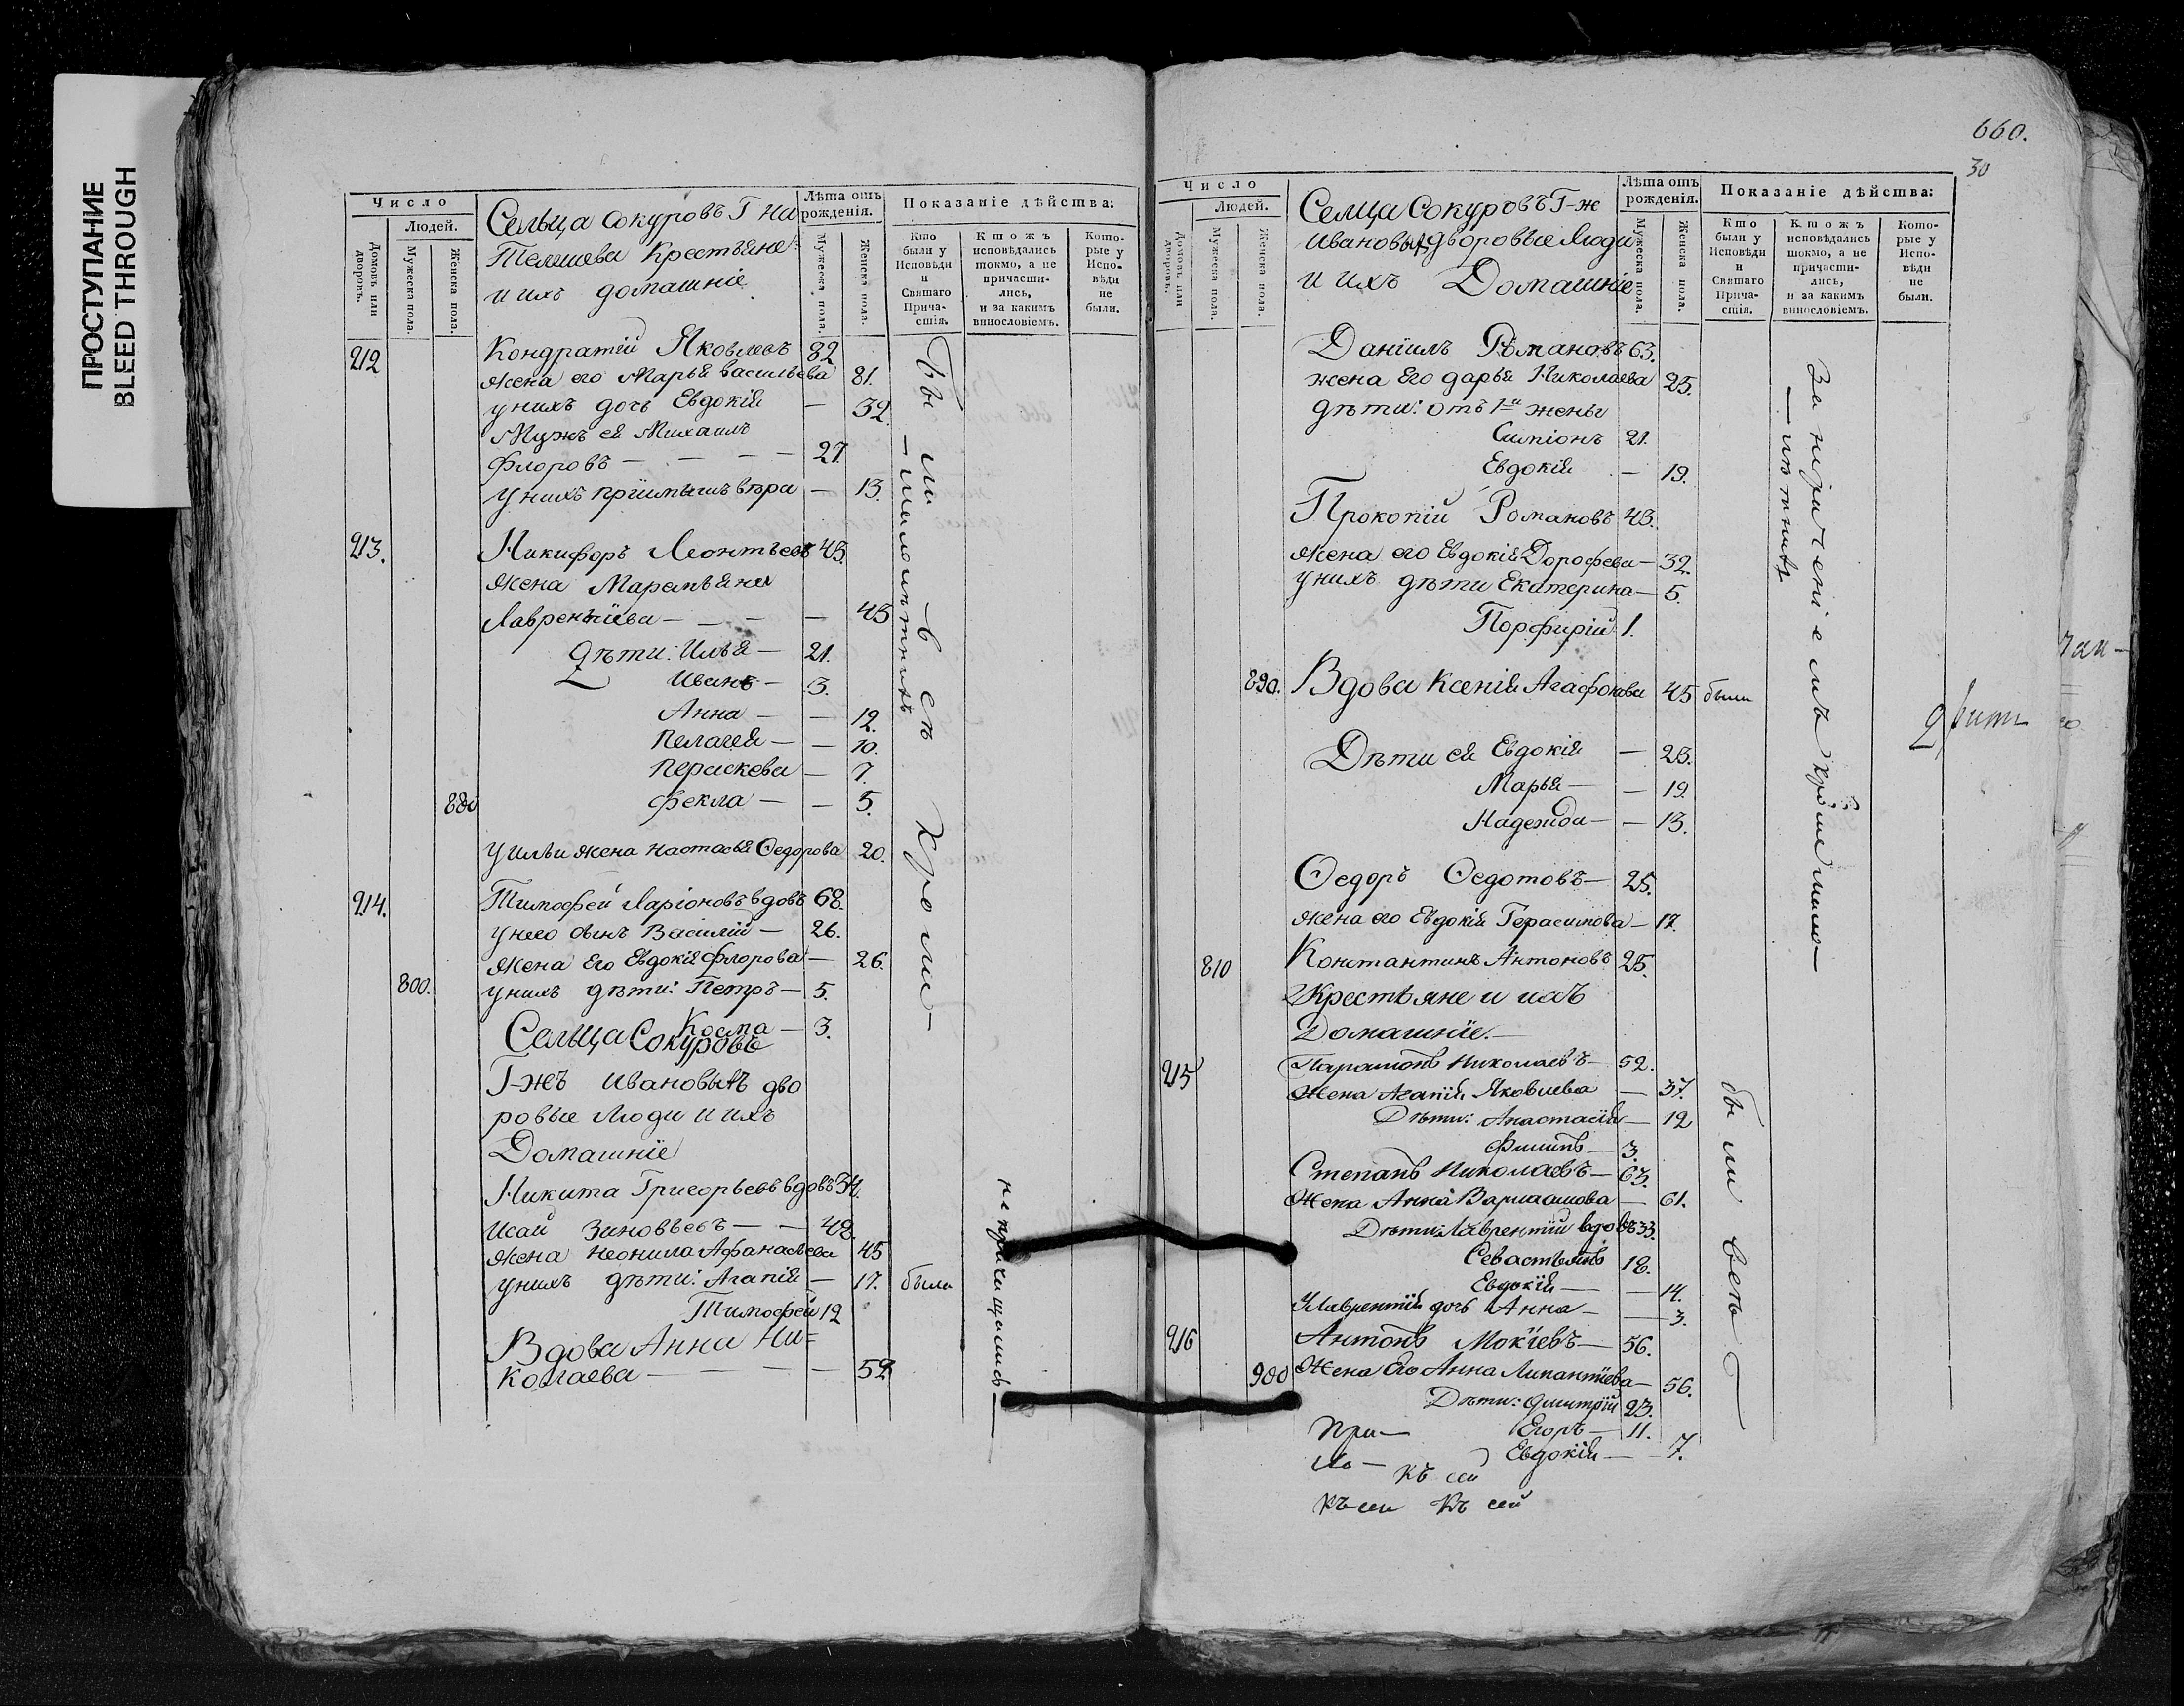 ПРОСТУПАНИЕ
BLEED THROUGH
Число
Людей.
Домовъ или дворовъ.
Мужеска пола.
Женска пола.
Сельца Сокуровъ Г на
Телишева Крестьяне
и ихъ домашніе
Лѣта отъ рожденія.
Мужеска пола.
Женска пола.
Показаніе дѣйства:
Кто были у Исповѣди и Святаго Прича-стія.
Ктожъ исповѣдались токмо, а не причасти-лись, и за какимъ винословіемъ.
Кото-рые у Испо-вѣди не были.
212 Кондратій Яковлевъ 82
жена его Марья васильева 81.
у нихъ дочь Евдокія — 32
Мужъ ея Михаилъ
Флоровъ — — — — 27.
у нихъ пріимышъ вѣра — 13.
213. Никифоръ Леонтьевъ 45.
жена Маремьяна
Лаврентіева — — — — 45
дѣти: Илья — 21.
Иванъ — 3.
Анна — — 12.
Пелагея — — 10.
Пераскева — 7.
880 Фекла — — 5.
у Ильи жена Настасья Ѳедорова 20.
214. Тимофей Ларіоновъ вдовъ 68.
у него сынъ Василій — 26.
жена Его Евдокія Флорова — 26.
800. у нихъ дѣти: Петръ — 5.
Косма — 3.
Сельца Сокуровъ
Г-жъ Ивановыхъ дво
ровые Люди и ихъ
Домашніе
Никита Григорьевъ вдовъ 34.
Исай Зиновьевъ — — 48.
жена Неонила Афанасьева 45
у нихъ дѣти: Агапія — 17. были
Тимофей 12
Вдова Анна Ни=
колаева — — — 52
были — всѣ кромѣ —
— малолѣтнихъ
не причащались —
660.
30
Число
Людей.
Домовъ или дворовъ.
Мужеска пола.
Женска пола.
Селца Сокуровъ Г-ж
Ивановыхъ дворовые Люди
и ихъ Домашніе
Лѣта отъ рожденія.
Мужеска пола.
Женска пола.
Показаніе дѣйства:
Кто были у Исповѣди и Святаго Прича-стія.
Ктожъ исповѣдались токмо, а не причасти-лись, и за какимъ винословіемъ.
Кото-рые у Испо-вѣди не были.
Даніилъ Романовъ 63.
жена Его дарья Николаева 25.
дѣти: отъ 1й жены
Симіонъ 21.
Евдокія — 19.
Прокопій Романовъ 43.
жена его Евдокія Дорофева — 32.
у нихъ дѣти Екатерина — 5.
Порфирій 1.
890. Вдова Ксенія Агафонова 45 были
Дѣти ея Евдокія — 23.
Марья — — 19.
Надежда — — 13.
Ѳедоръ Ѳедотовъ — 25.
жена его Евдокія Герасимова — 17.
810 Константинъ Антоновъ 25.
Крестьяне и ихъ
Домашніе. —
215 Парамонъ Николаевъ — 52.
Жена Агапія Яковлева — 37.
Дѣти: Анастасія — 12
Филипъ — 3.
Степанъ Николаевъ — 63.
Жена Анна Варлаамова — 61.
Дѣти: Лаврентій вдовъ 33.
Севастьянъ 18.
Евдокія — — 14.
У Лаврентія дочь Анна — — 3.
216 Антонъ Мокіевъ — 56.
900 Жена Его Анна — 56.
Дѣти: Дмитрій 23.
Егоръ — 11.
Евдокія — 7.
кромѣ мало—
— лѣтнихъ
были всѣ
При —
къ сей
къ сей